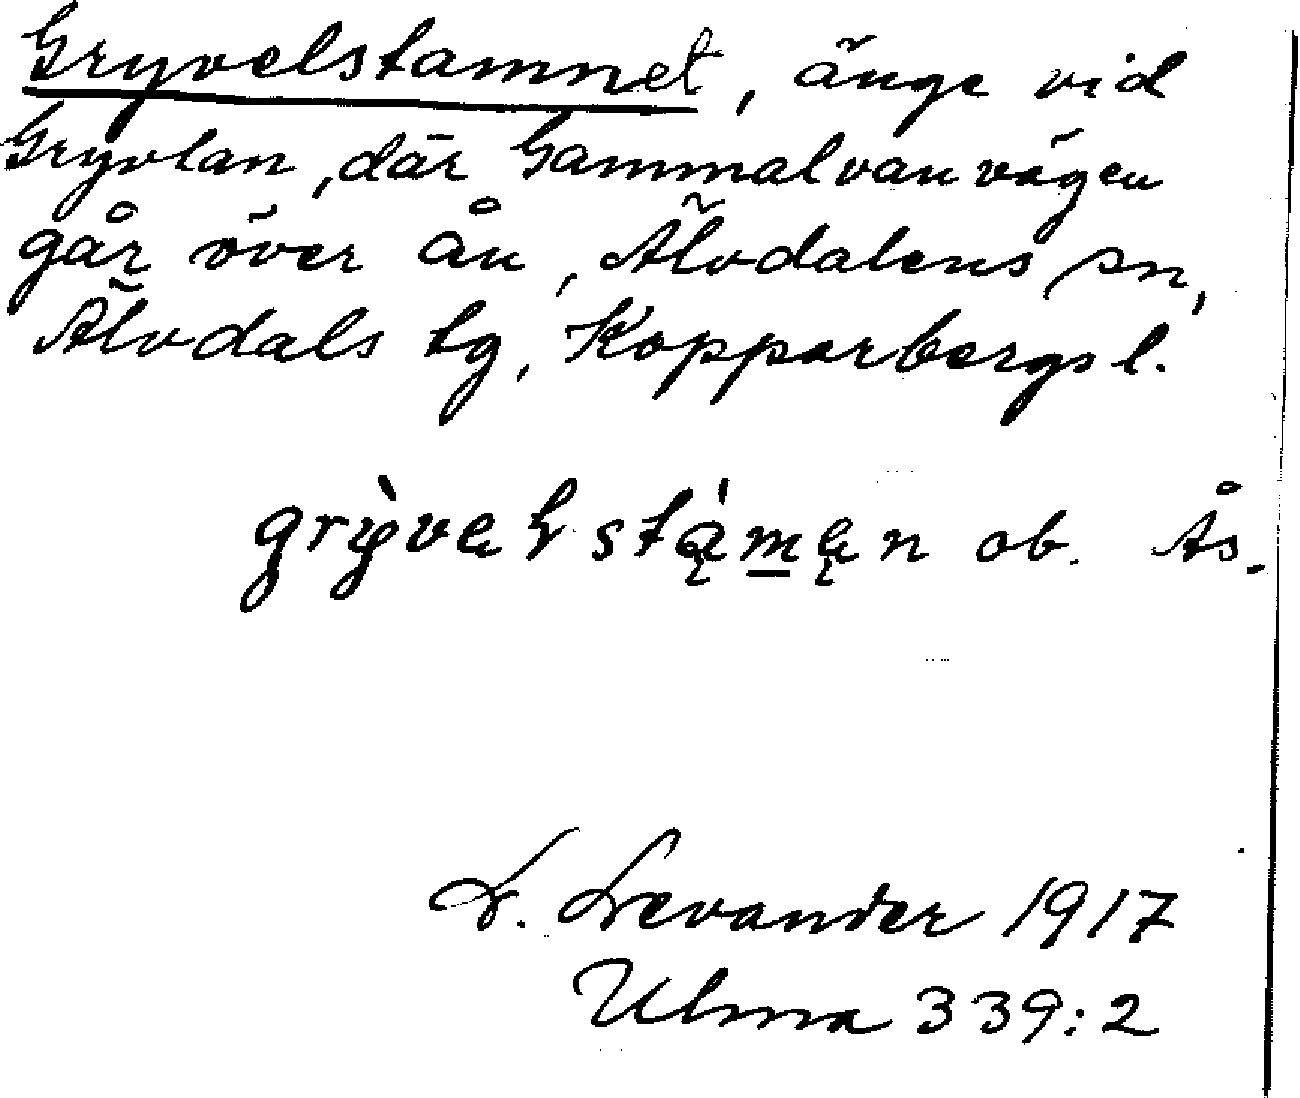 Gryvelstamnet, änge vid
Gryvlan, där Gammalvanvägen
går över ån, Älvdalens sn,
Älvdals tg, Kopparbergs l.
ob. Ås.
L. Levander 1917
Ulma 339:2